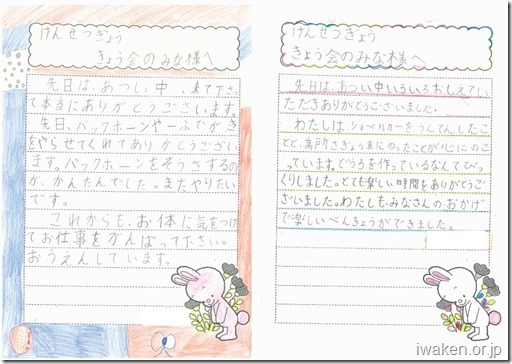 けんせつぎょう
きょう会のみな様へ
先日は、あつい中、来て下さっ
て本当にありがとうございます。
先日、バックホーンや
をやらせてくれてありがとうござい
ます。バックホーンをそうさするの
が、かんたんでした。またやりたい
です。
これからも、お体に気をつけ
てお仕事をがんばって下さい。
おうえんしています。
けんせつぎょう
きょう会のみな様へ
先日は、あつい中いろいろおしえてい
ただきありがとうございました。
わたしは、ショベルカーをうんてんしたこ
とと、高戸さぎょう車にのったことが心にのこ
っています。どうろを作っているなんてびっ
くりしました。とても楽しい時間をありがとうご
ざいました。わたしも、みなさんのおかげ
で楽しいべんきょうができました。
iwaken.or.jp